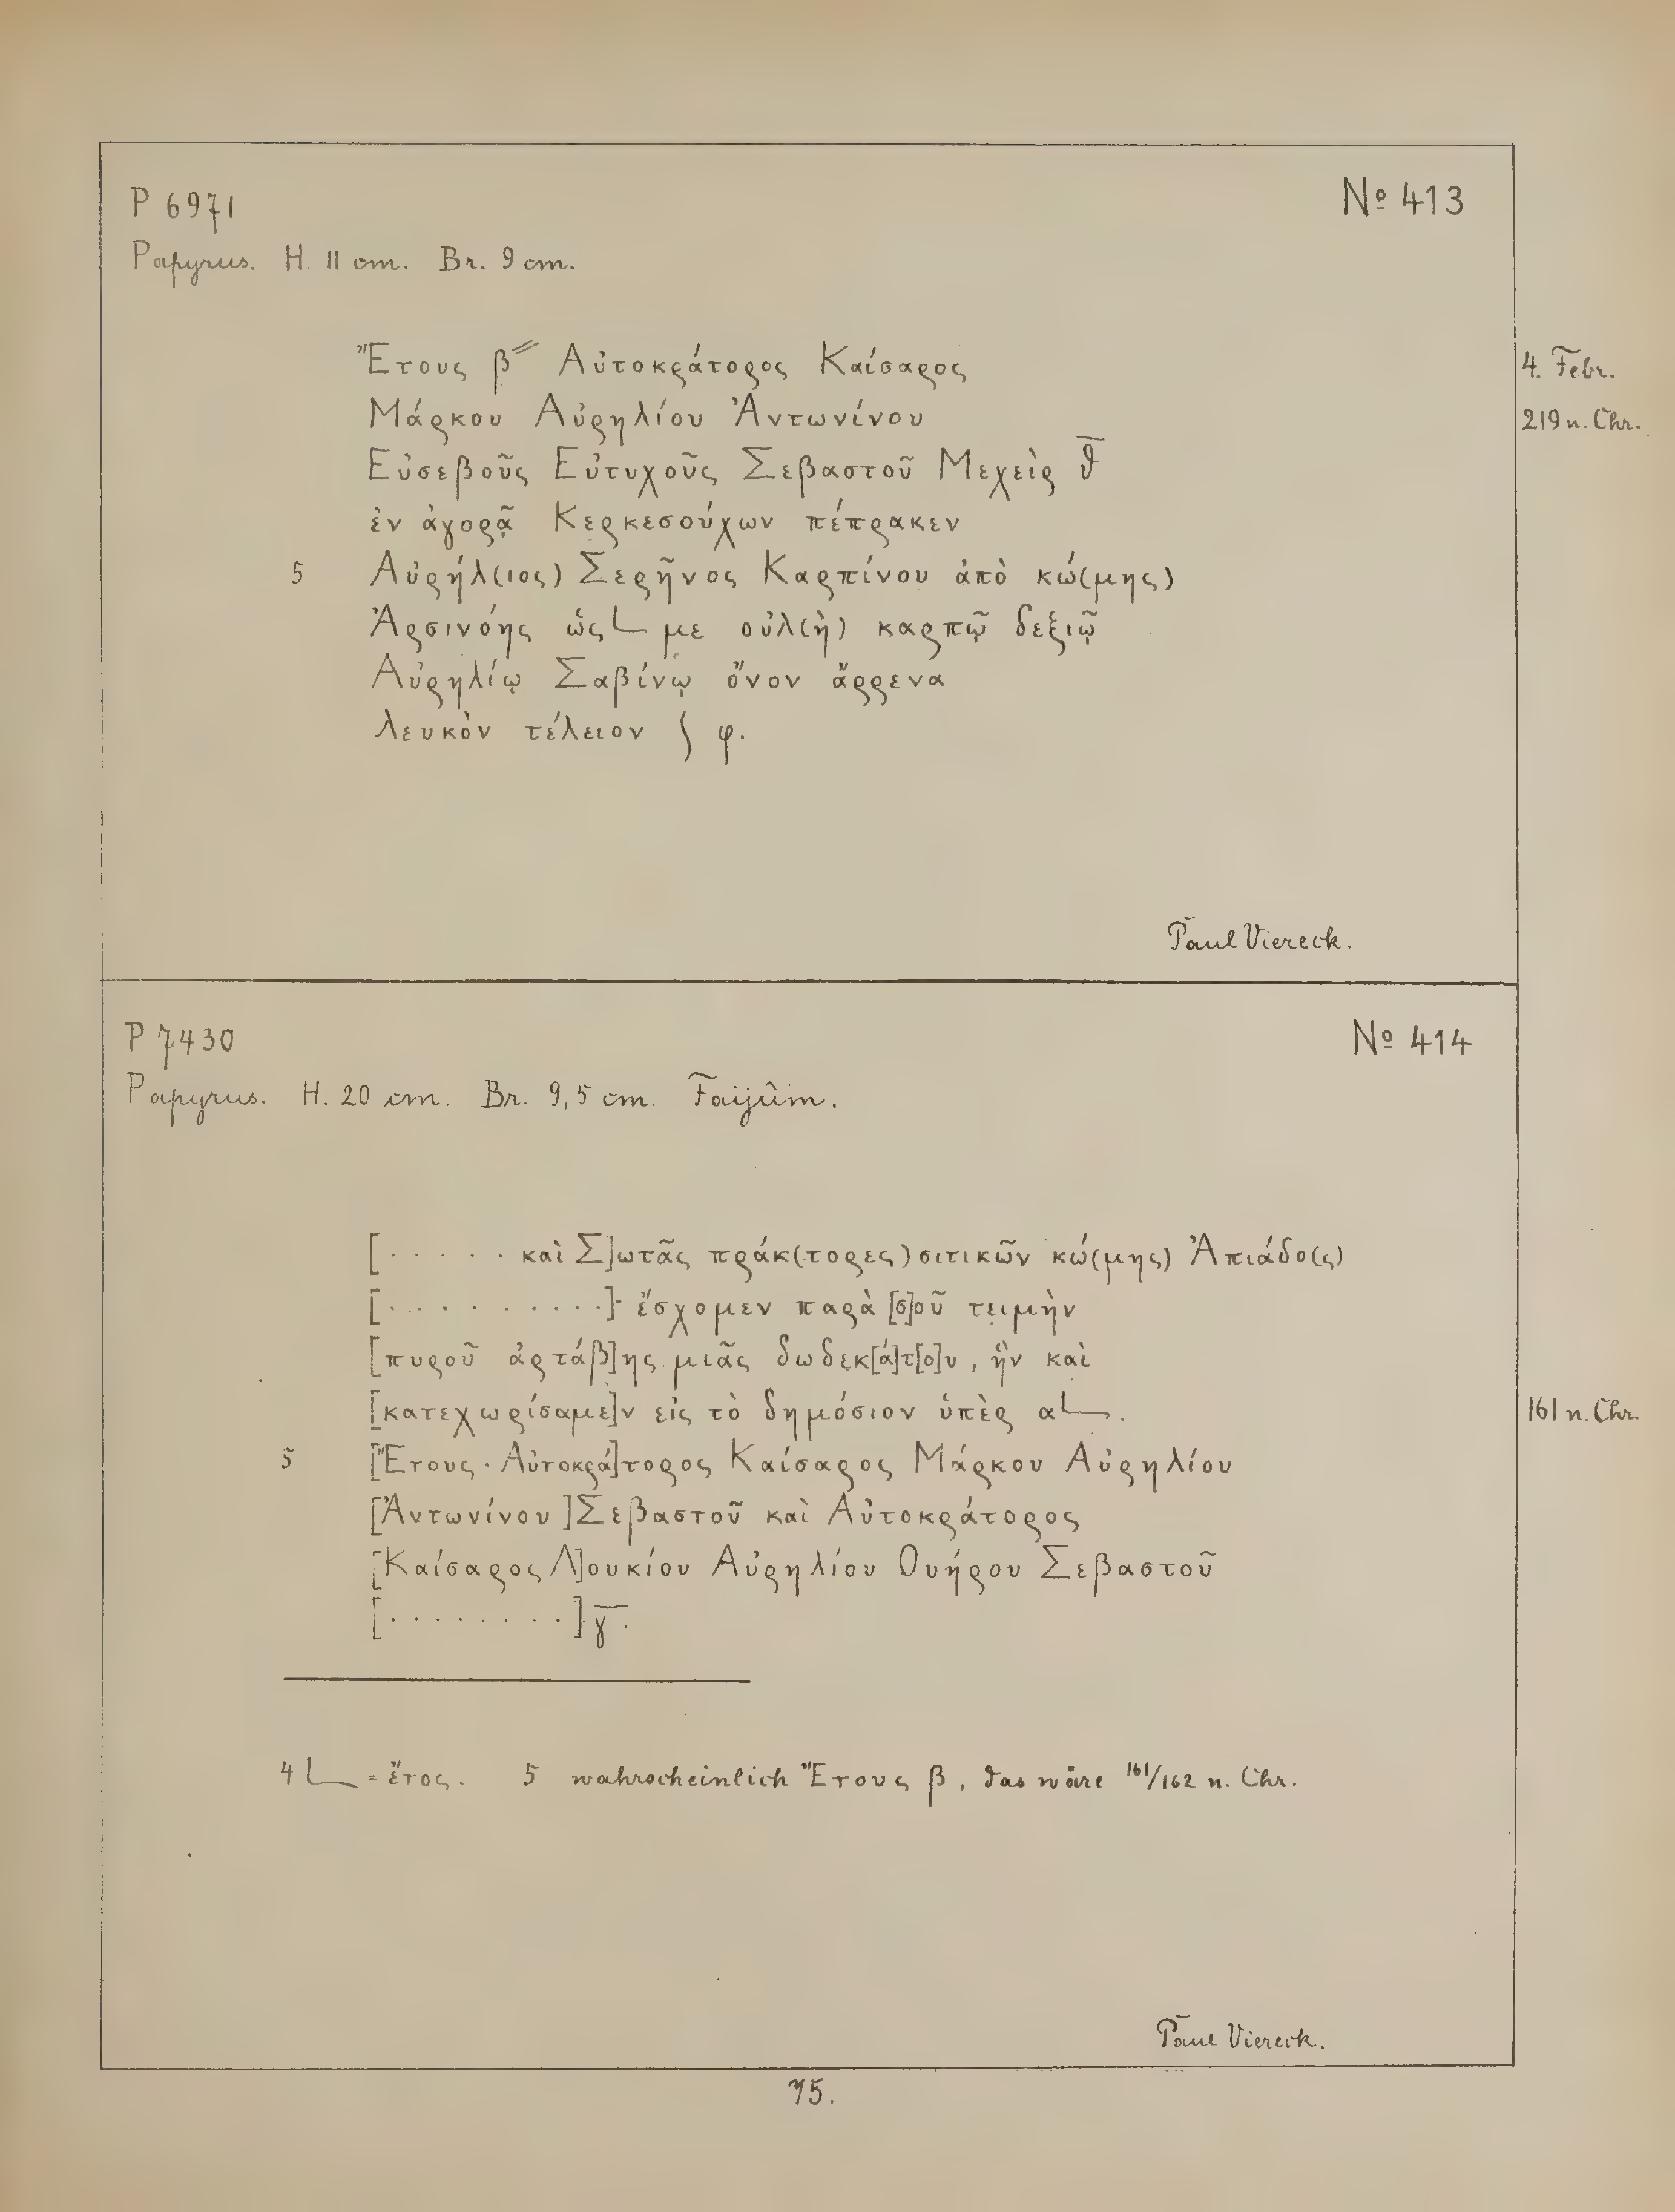 P 6971
Nº 413
Papyrus. H. 11 cm. Br. 9 cm.
Ἔτους β〃 Αὐτοκράτορος Καίσαρος
4. Febr.
Μάρκου Αὐρηλίου Ἀντωνίνου
219 n. Chr.
Εὐσεβοῦς Εὐτυχοῦς Σεβαστοῦ Μεχεὶρ θ̅
ἐν ἀγορᾷ Κερκεσούχων πέπρακεν
5 Αὐρήλ(ιος) Σερῆνος Καρπίνου ἀπὸ κώ(μης)
Ἀρσινόης ὡς L με οὐλ(ὴ) καρπῷ δεξιῷ
Αὐρηλίῳ Σαβίνῳ ὄνον ἄρρενα
λευκὸν τέλειον ∫ φ.
Paul Viereck.
P 7430
Nº 414
Papyrus. H. 20 cm. Br. 9,5 cm. Faijûm.
[· · · · · καὶ Σ]ωτᾶς πράκ(τορες) σιτικῶν κώ(μης) Ἀπιάδο(ς)
[· · · · · · · · ·]· ἔσχομεν παρὰ [σ]οῦ τειμὴν
[πυροῦ ἀρτάβ]ης μιᾶς δωδεκ[ά]τ[ο]υ, ἣν καὶ
[κατεχωρίσαμε]ν εἰς τὸ δημόσιον ὑπὲρ αL.
161 n. Chr.
5 [Ἔτους · Αὐτοκρά]τορος Καίσαρος Μάρκου Αὐρηλίου
[Ἀντωνίνου ]Σεβαστοῦ καὶ Αὐτοκράτορος
[Καίσαρος Λ]ουκίου Αὐρηλίου Ουήρου Σεβαστοῦ
[· · · · · · · ·] γ̅.
4 L = ἔτος. 5 wahrscheinlich Ἔτους β, das wäre 161/162 n. Chr.
Paul Viereck.
75.